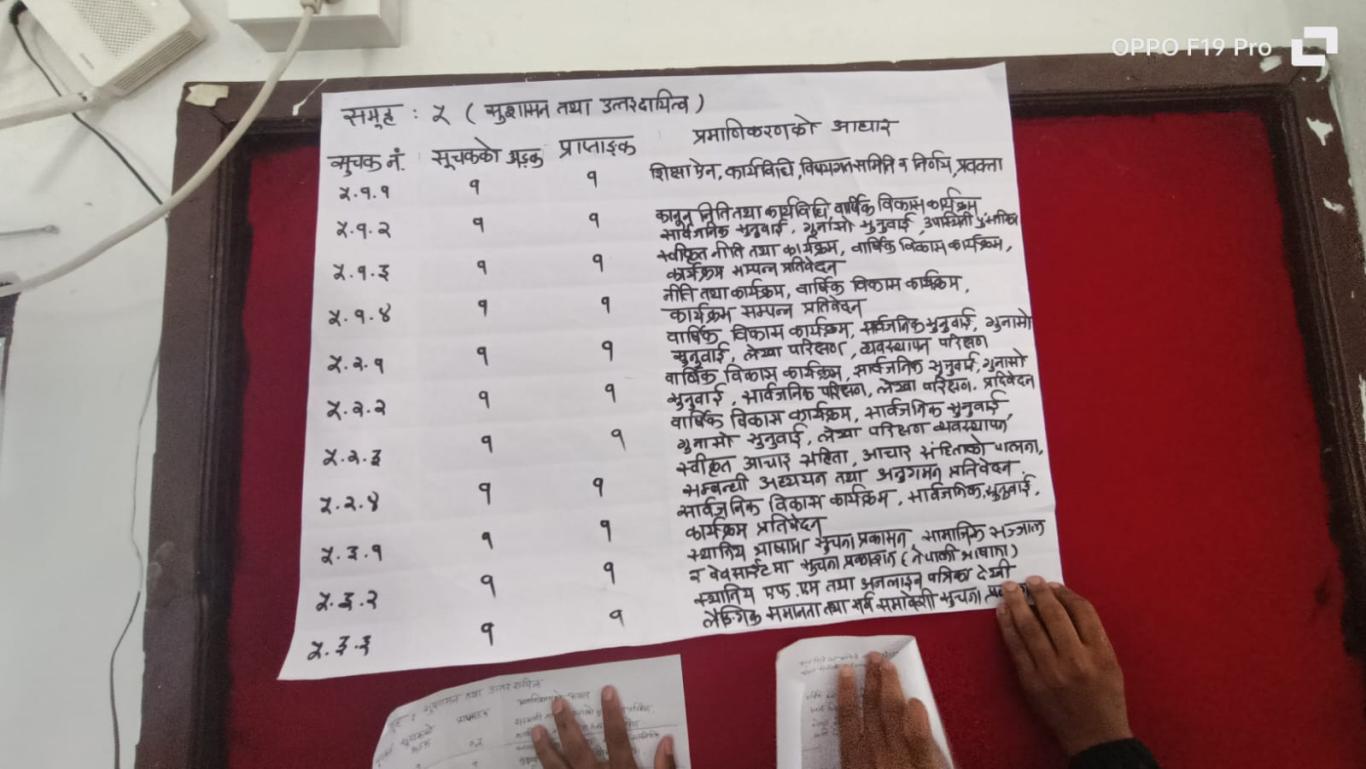 OPPO F19 Pro
समूह : ५ ( सुशासन तथा उत्तरदायित्व )
सूचक नं. सूचकको अङ्क प्राप्ताङ्क प्रमाणिकरणको आधार
५.१.१ १ १ शिक्षा ऐन, कार्यविधि, विषयगत समिति र निर्णय, प्रवक्ता
५.१.२ १ १ कानून निति तथा कार्यविधि, वार्षिक विकास कार्यक्रम
सार्वजनिक सुनुवाई, गुनासो सुनुवाई, उपस्थिती
५.१.३ १ १ स्वीकृत नीति तथा कार्यक्रम, वार्षिक विकास कार्यक्रम,
कार्यक्रम सम्पन्न प्रतिवेदन
५.१.४ १ १ नीति तथा कार्यक्रम, वार्षिक विकास कार्यक्रम,
कार्यक्रम सम्पन्न प्रतिवेदन
५.२.१ १ १ वार्षिक विकास कार्यक्रम, सार्वजनिक सुनुवाई, गुनासो
सुनुवाई, लेखा परिक्षण, व्यवस्थापन परिक्षण
५.२.२ १ १ वार्षिक विकास कार्यक्रम, सार्वजनिक सुनुवाई, गुनासो
सुनुवाई, सार्वजनिक परिक्षण, लेखा परिक्षण, प्रतिवेदन
५.२.३ १ १ वार्षिक विकास कार्यक्रम, सार्वजनिक सुनुवाई,
गुनासो सुनुवाई, लेखा परिक्षण व्यवस्थापन
५.२.४ १ १ स्वीकृत आचार संहिता, आचार संहिताको पालना,
सम्बन्धी अध्ययन तथा अनुगमन प्रतिवेदन
५.३.१ १ १ सार्वजनिक विकास कार्यक्रम, सार्वजनिक सुनुवाई,
कार्यक्रम प्रतिवेदन
५.३.२ १ १ स्थानिय भाषामा सुचना प्रकासन, सामाजिक सञ्जाल
र वेवसाईटमा सुचना प्रकाशन (नेपाली भाषामा)
५.३.३ १ १ स्थानिय एफ.एम तथा अनलाइन पत्रिका देखी
लैङ्गिक समानता तथा सर्व समावेशी सुचना
सुशासन तथा उत्तरदायित्व